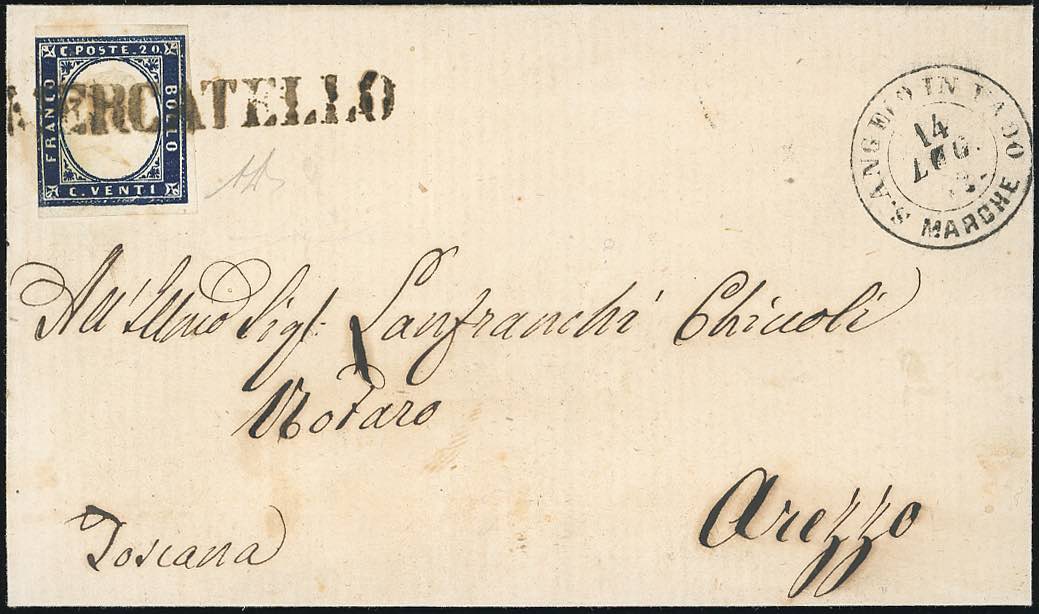 C. POSTE. 20.
FRANCO
BOLLO
C. VENTI
MERCATELLO
S. ANGELO IN VADO
14
LUG.
MARCHE
All' Illmo Sigr. Lanfranchi Chiccoli
Notaro
Arezzo
Toscana